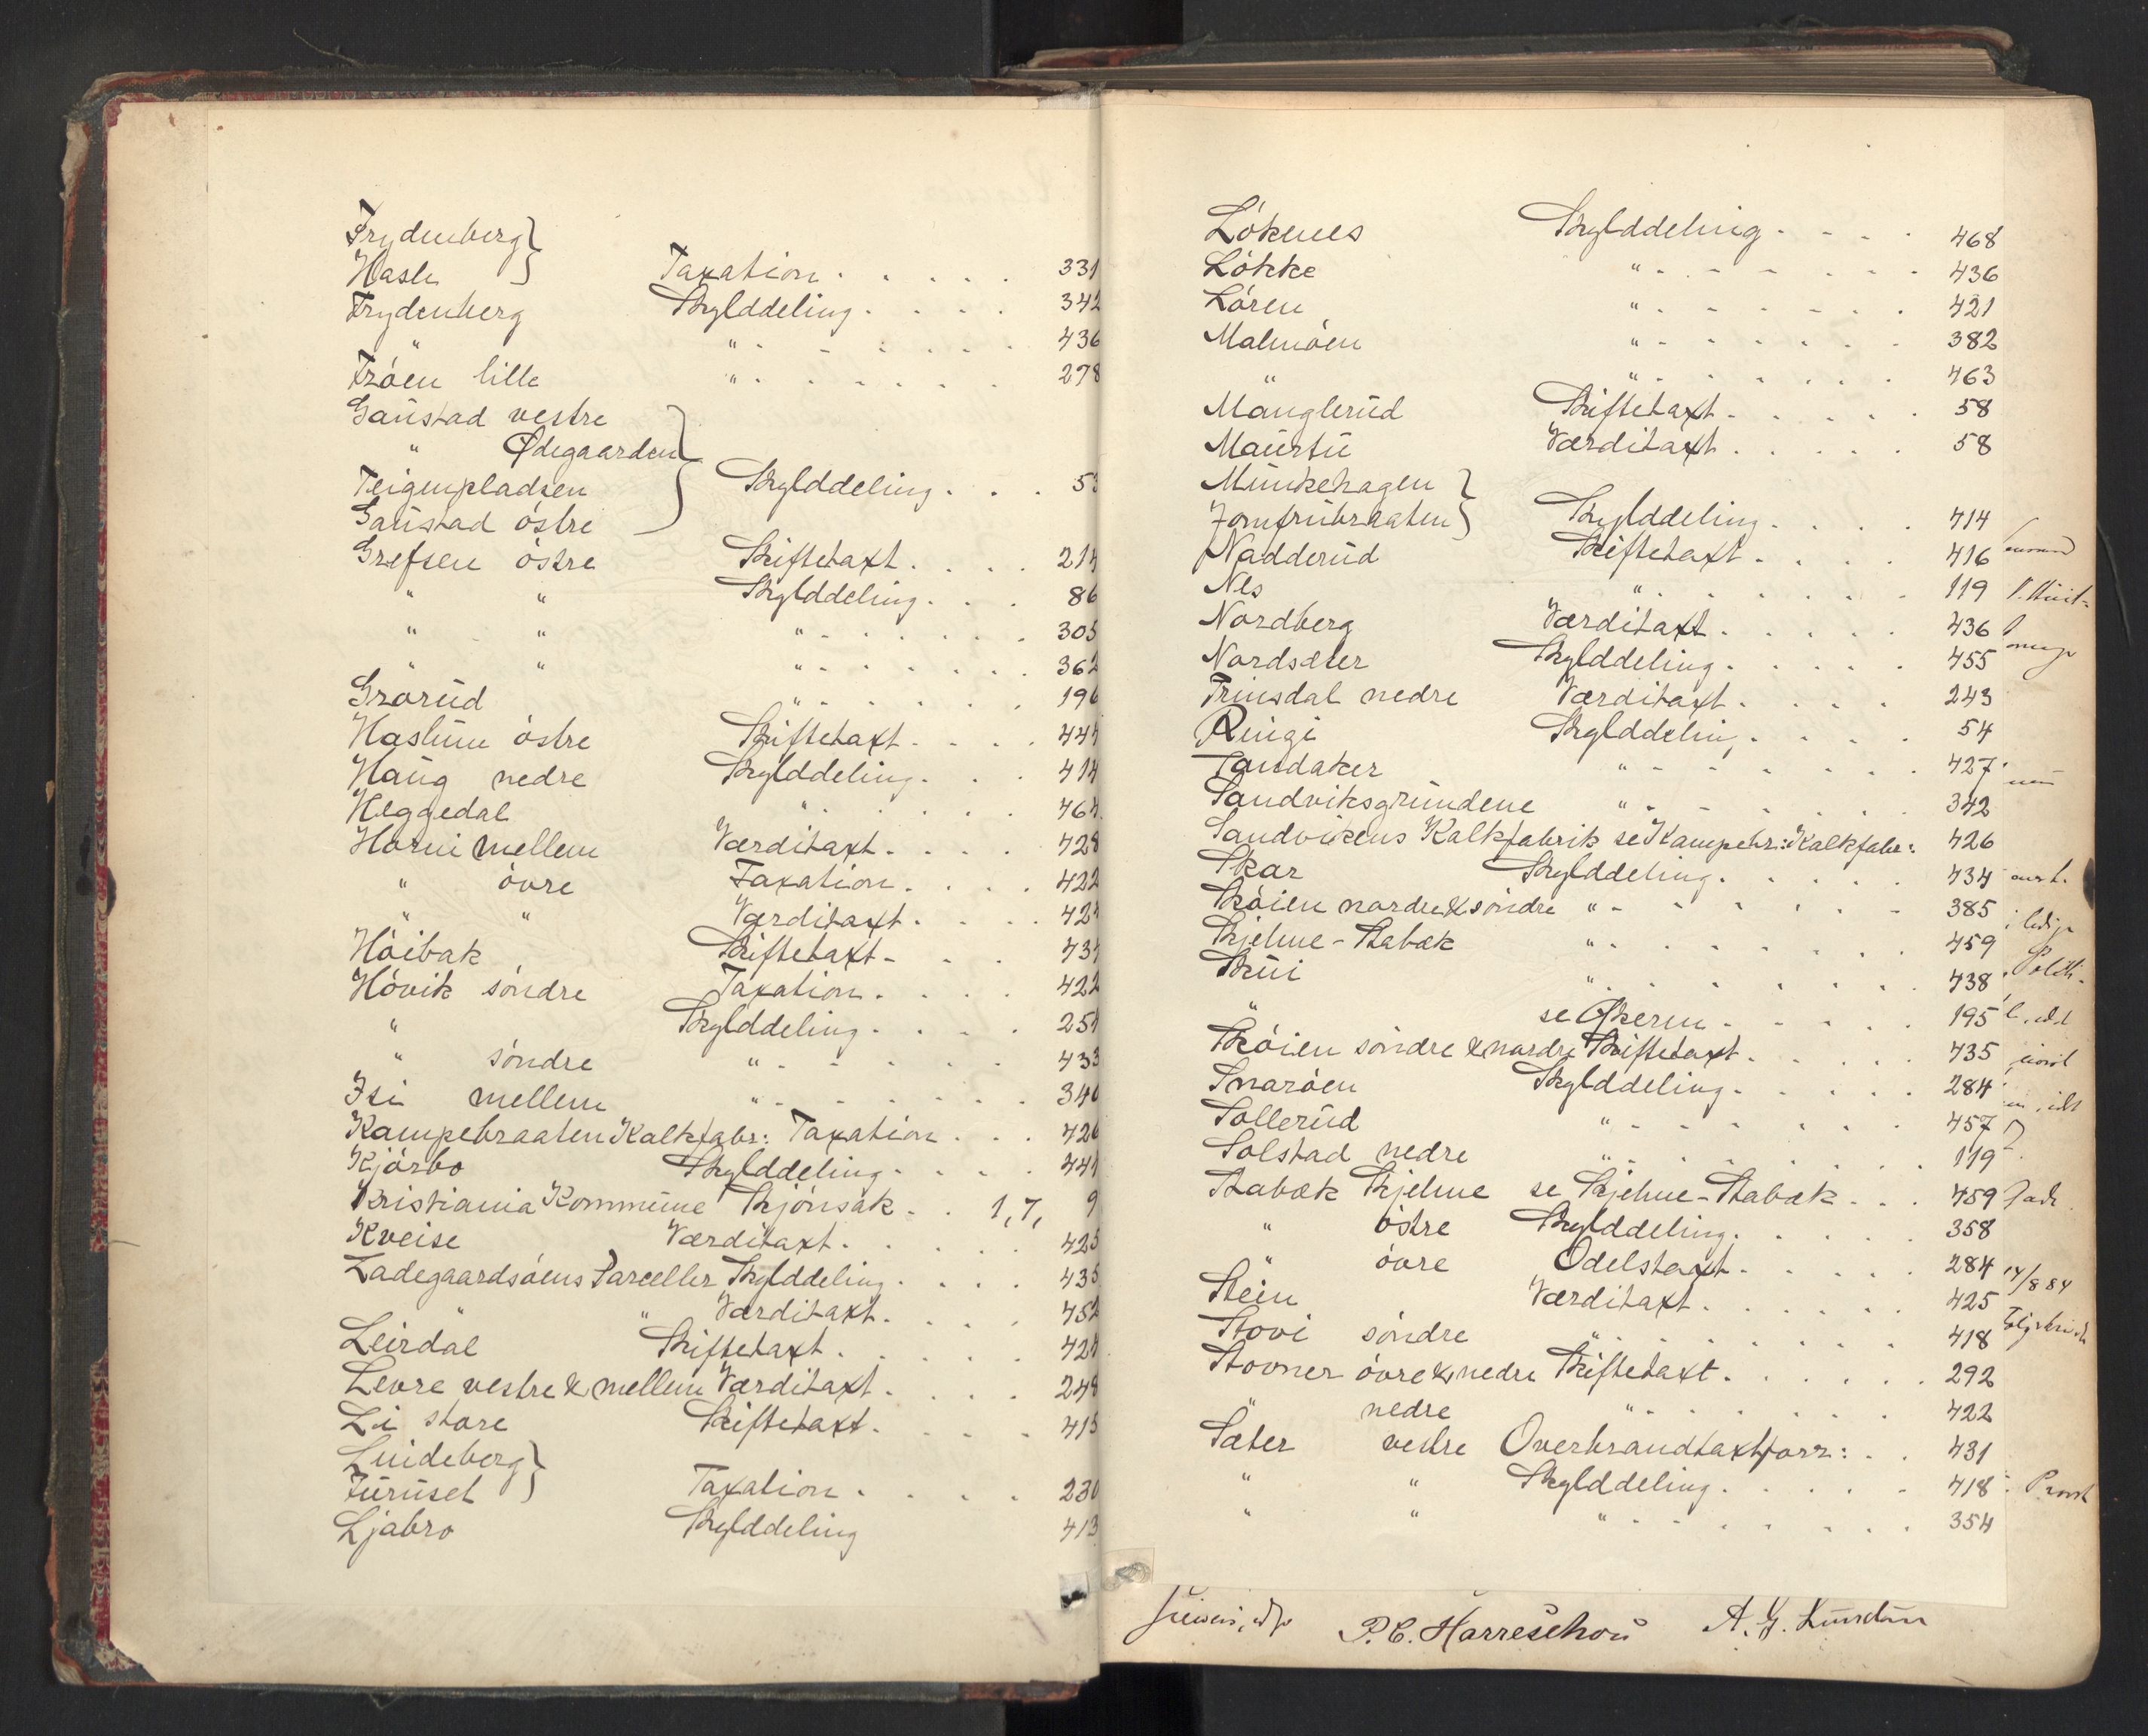 Frydenberg }
Hasle } Taxation . . . . . 331
Frydenberg Skylddeling . . . . 342
" " . . . . . . 436
Frøen lille " . . . . . . 278
Gaustad vestre
" Ødegaarden
Teigenpladsen } Skylddeling . . . 53
Gaustad östre
Grefsen östre Skiftetaxt . . . . 214
" " Skylddeling . . . 86
" " " . . . . . . 305
" " " . . . . . . 362
Grorud " . . . . . . 196
Haslum östre Skiftetaxt . . . . 444
Haug nedre Skylddeling . . . 414
Heggedal " . . . . . . 464
Horni mellem Værditaxt . . . . 428
" övre Taxation . . . . 422
" " Værditaxt . . . .
Höibak Skiftetaxt . . .
Hövik söndre Taxation . . . . 422
" Skylddeling . . . .
" söndre " . . . . . . 433
Isi mellem " . . . . . . 340
Kampebraaten Kalkfabr: Taxation . . . 426
Kjörbo Skylddeling . . . . 441
Kristiania Kommune Skjönsak . . 1, 7, 9
Kveise Værditaxt . . . . . 425
Ladegaardsöens Parceller Skylddeling . . . . 435
" " Værditaxt . . . . 452
Leirdal Skiftetaxt . . . . . 424
Levre vestre & mellem Værditaxt . . . . 248
Li store Skiftetaxt . . . . 415
Lindeberg }
Furuset } Taxation . . . . 230
Ljabro Skylddeling 413
Lökenes Skylddeling . . . . 468
Lökke " . . . . . . 436
Lören " . . . . . . 421
Malmöen " . . . . . . 382
" " . . . . . . 463
Manglerud Skiftetaxt . . . . . 58
Maurtu Værditaxt . . . . . 58
Munkehagen }
Jomfrubraaten } Skylddeling . . . . 414
Nadderud Skiftetaxt . . . . 416
Nes " . . . . . . 119
Nordberg Værditaxt . . . . . 436
Nordsæter Skylddeling . . . . . 455
Trinsdal nedre Værditaxt . . . . 243
Ringi Skylddeling . . . . 54
Sandaker " . . . . . . 427
Sandviksgrundene " . . . . . . 342
Sandvikens Kalkfabrik se Kampebr: Kalkfabr: 426
Skar Skylddeling . . . . . 434
Skøien nordre & söndre " . . . . . . 385
Skjelne-Stabæk " . . . . . . 459
Skui " . . . . . . 438
" se Økern . . . . . 195
Skøien söndre & nordre Skiftetaxt . . . . . 435
Snarøen Skylddeling . . . . . 284
Sollerud " . . . . . . 457
Solstad nedre " . . . . . . 119
Stabæk Skjelne se Skjelne-Stabæk . . . 459
" östre Skylddeling . . . . . 358
" övre Odelstaxt . . . . . 284 14/8 84
Stein Værditaxt . . . . . . 425
Stovi söndre " . . . . . . 418
Stovner övre & nedre Skiftetaxt . . . . . . 292
" nedre " . . . . . . 422
Sæter vestre Overbrandtaxtforr: . . 431
" " Skylddeling . . . . . 418
" " " . . . . . . 354
P. C. Harreschou A. G.